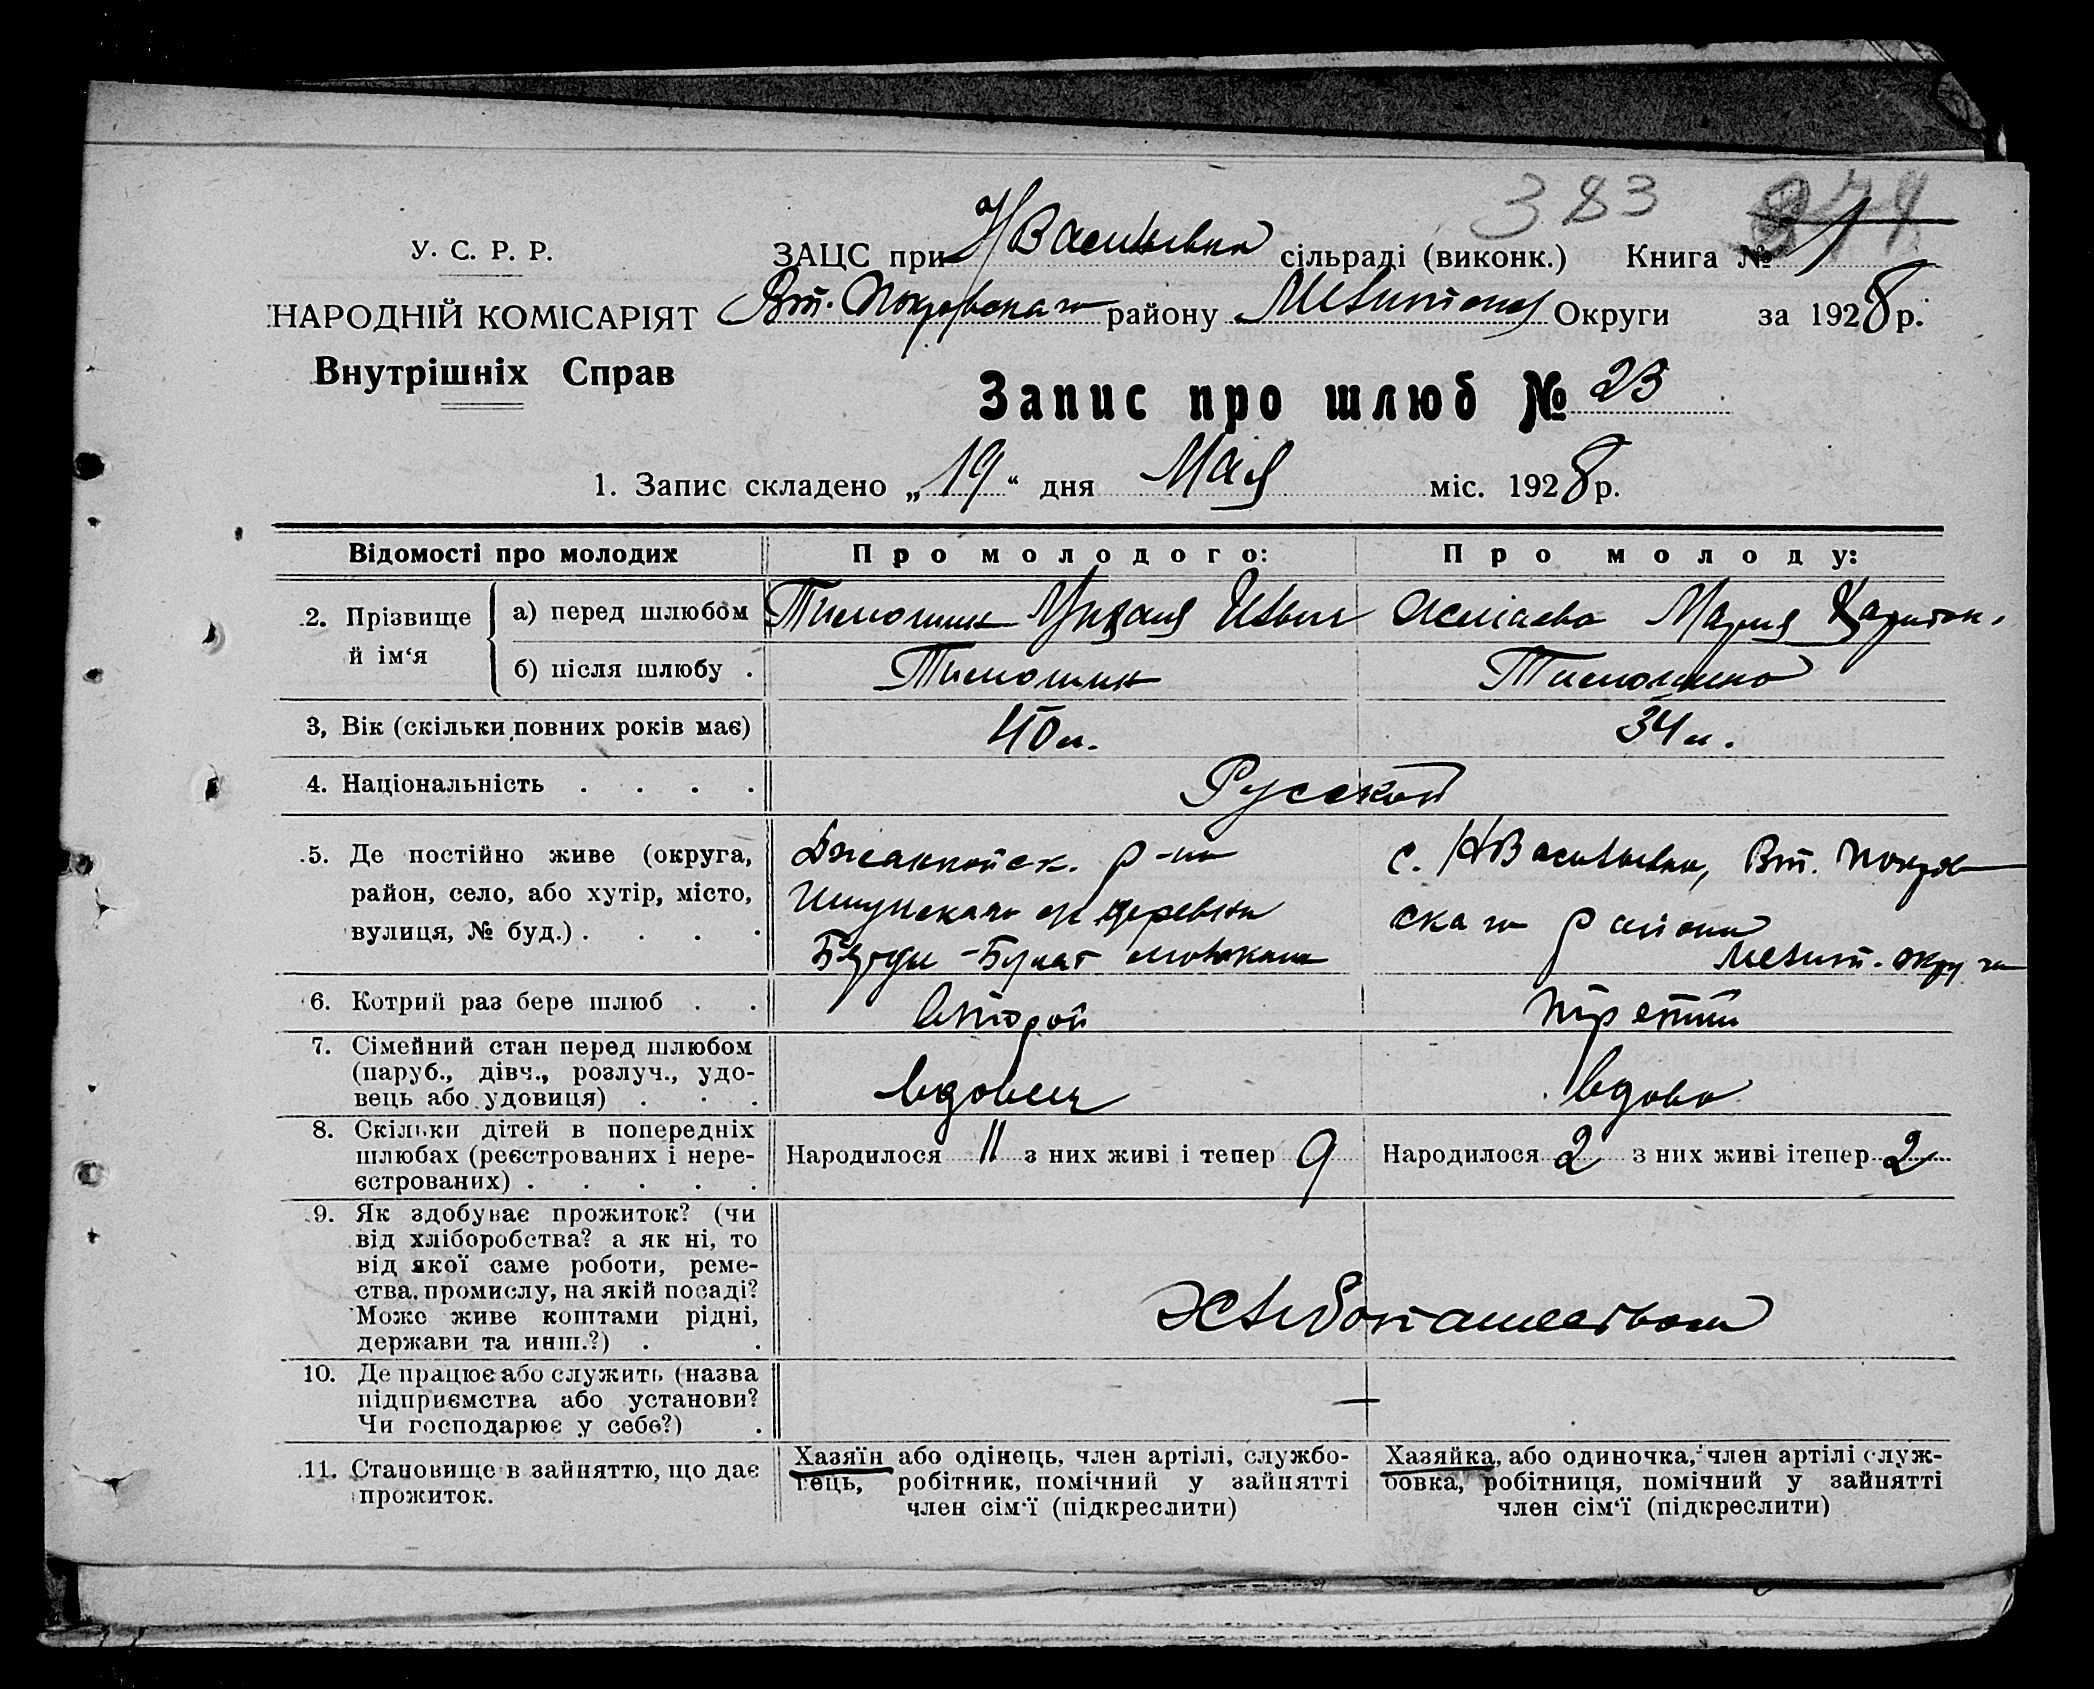 383
У. С. Р. Р.
ЗАЦС при НВасильевка сільраді (виконк.) Книга № 1
НАРОДНІЙ КОМІСАРІЯТ
Вт. Покровскаго району Мелитопол Округи за 1928 р.
Внутрішніх Справ
Запис про шлюб № 23
1. Запис складено „19“ дня Мая міс. 1928 р.
Відомості про молодих Про молодого: Про молоду:
2. Прізвище й ім‘я
а) перед шлюбом Тимошин Михаил Мария Харитон.
б) після шлюбу . Тимошин Тимошина
3, Вік (скільки повних років має) 40 л. 34 л.
4. Національність . . . . Русской
5. Де постійно живе (округа, Джанкойск. р-на с. НВасильевка, Вт. Покров
район, село, або хутір, місто, деревни скаго района
вулиця, № буд.) . . . . Мелит. округа
6. Котрий раз бере шлюб . . Второй третий
7. Сімейний стан перед шлюбом
(паруб., дівч., розлуч., удо-
вець або удовиця) . . . вдовец вдова
8. Скільки дітей в попередніх
шлюбах (реєстрованих і нере- Народилося 11 з них живі і тепер 9 Народилося 2 з них живі ітепер 2
єстрованих) . . . . .
9. Як здобуває прожиток? (чи
від хліборобства? а як ні, то
від якої саме роботи, реме-
ства, промислу, на якій посаді?
Може живе коштами рідні, Хлебопашеством
держави та инш.?) . .
10. Де працює або служить (назва
підприємства або установи?
Чи господарює у себе?) .
11. Становище в зайняттю, що дає
прожиток.
Хазяїн або одінець, член артілі, службо-
вець, робітник, помічний у зайнятті
член сім‘ї (підкреслити)
Хазяйка, або одиночка, член артілі служ-
бовка, робітниця, помічний у зайнятті
член сім‘ї (підкреслити)